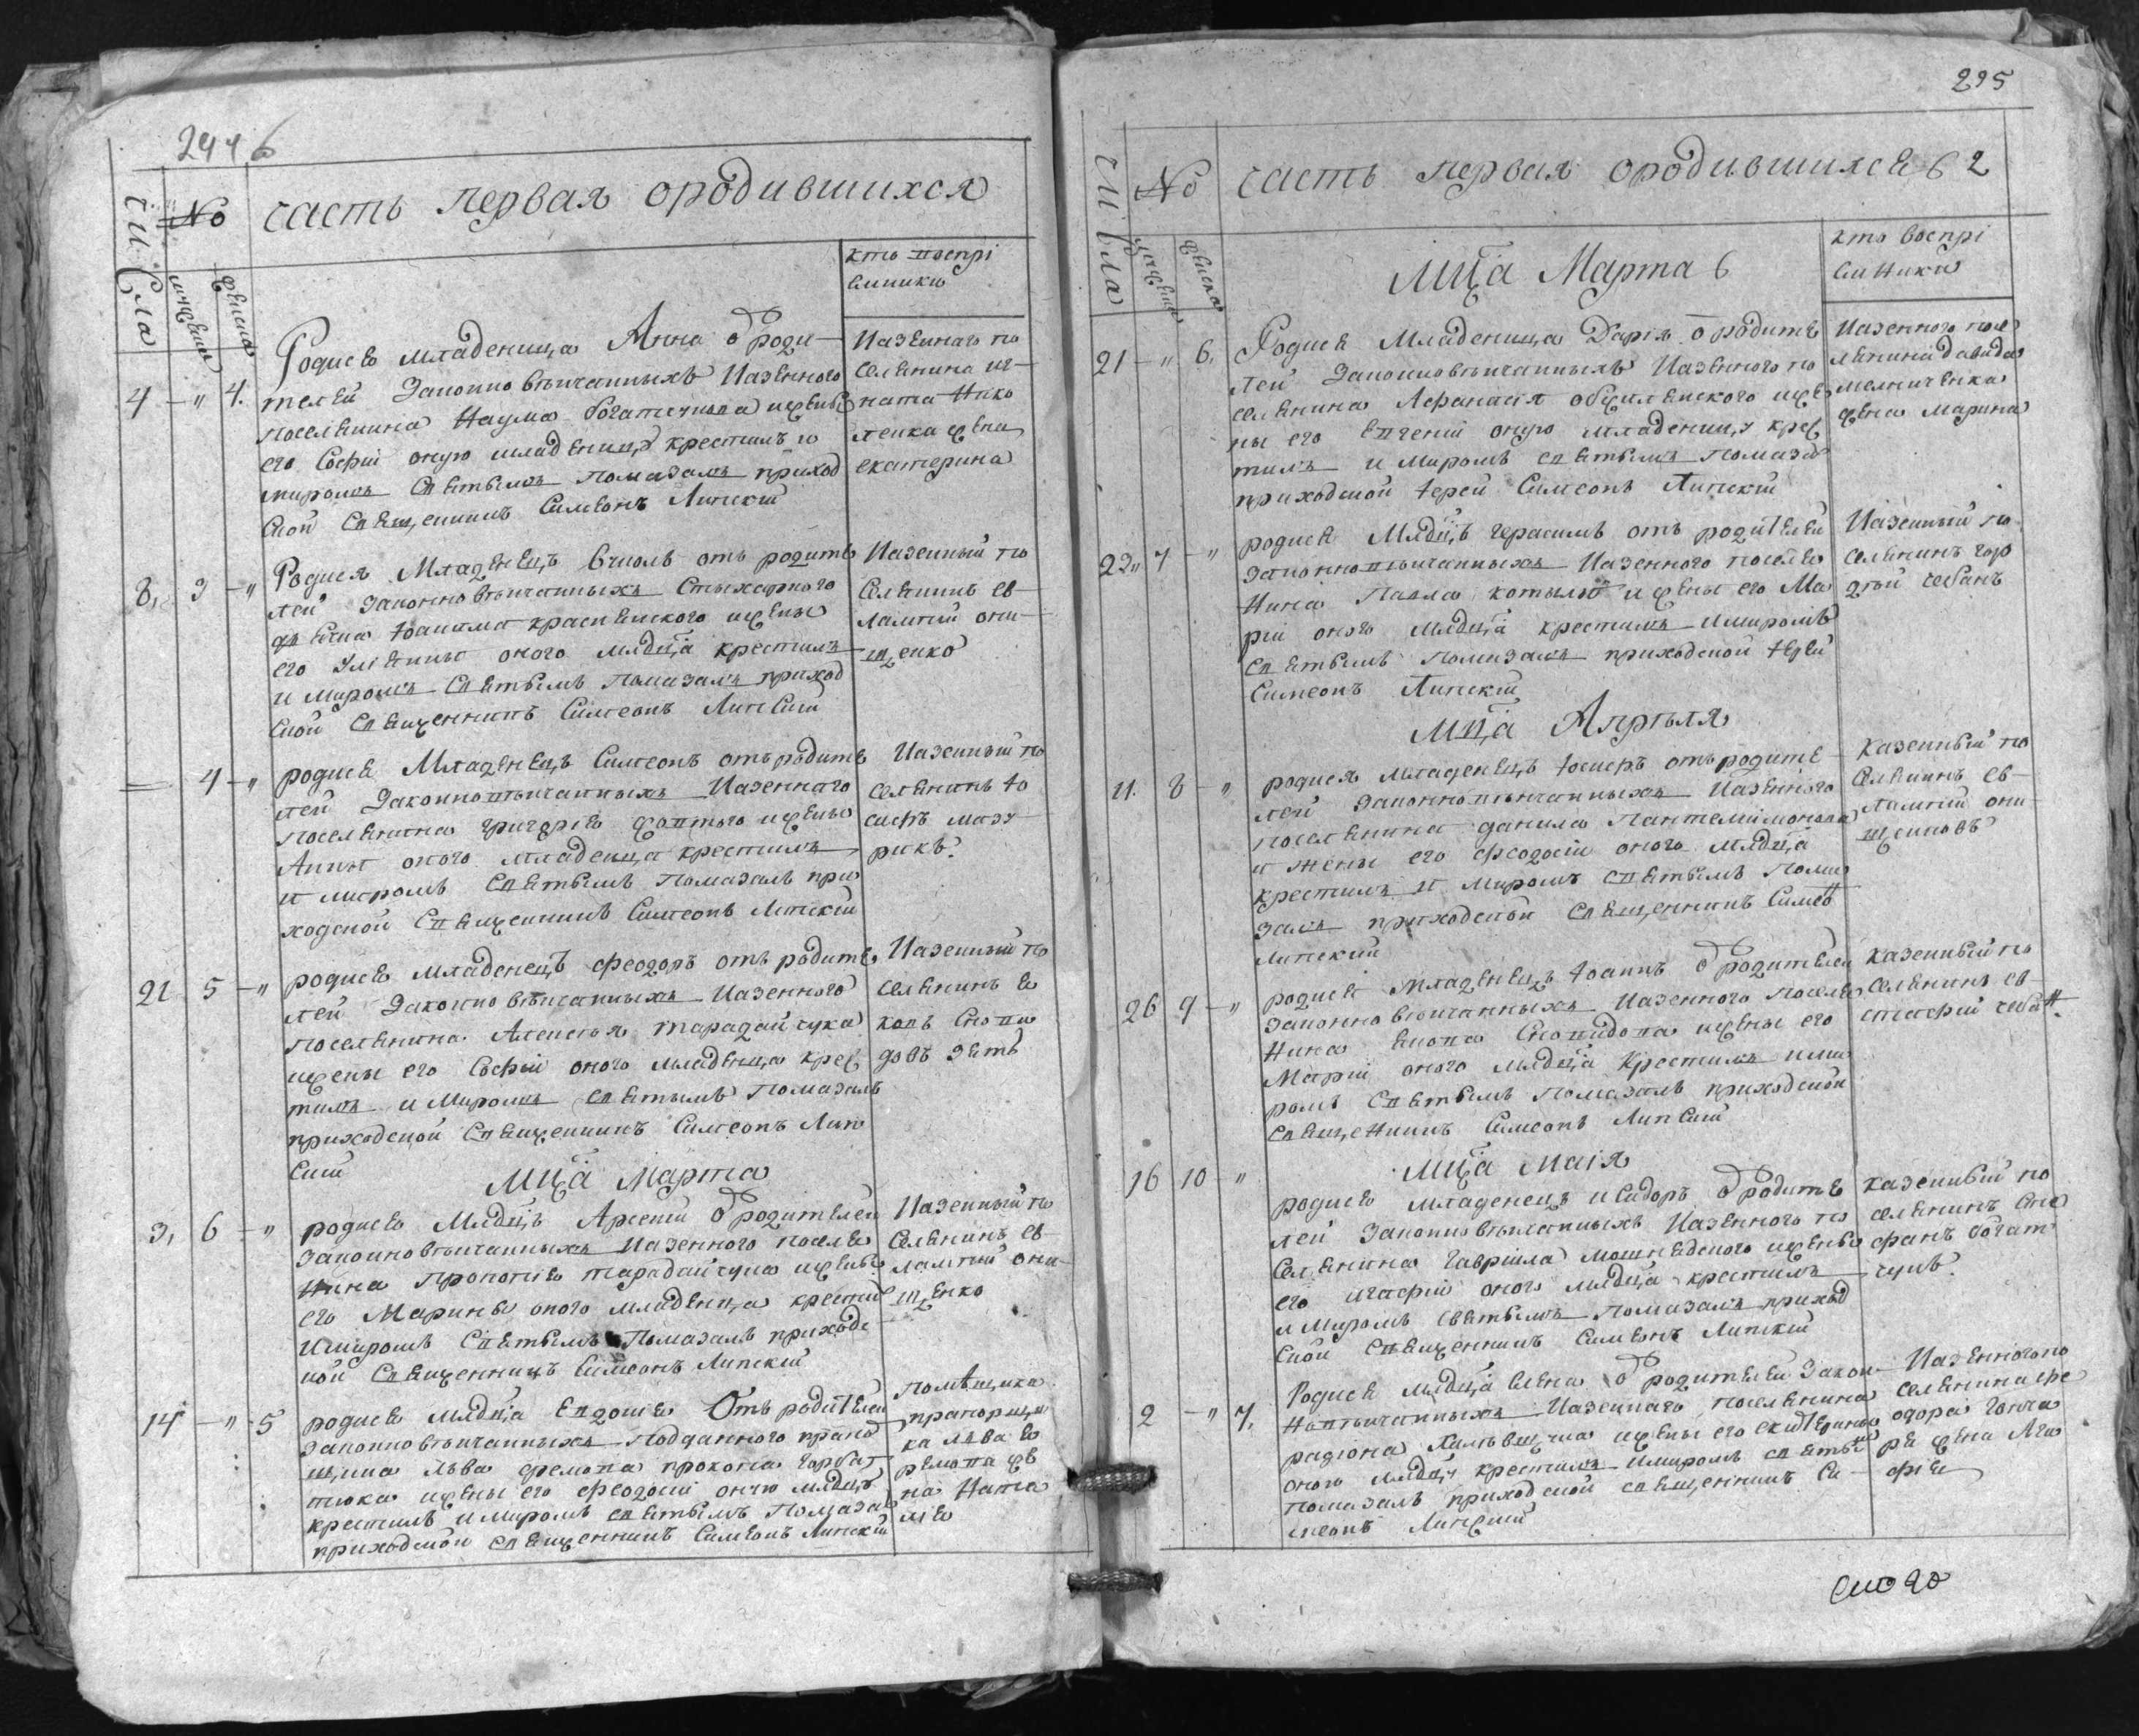 часть первая ородившихся
кто воспрі
емники
4 " 4. Родися младеница Анна ѿ роди
телей законно вѣнчанныхъ казенного
поселянина Наума Богатечука ижены
его Софіи оную младеницу крестилъ и
миромъ святымъ помазалъ приход
ской священникъ Симеонъ Липскій
казеннаго по
селянина иг
ната Нико
ленка жена
екатерина
8, 3 " Родися Младенецъ отъ родите
лей законно вѣнчанныхъ Стихарного
дьячка Іоанима красненского ижены
его Уліянны оного млдца крестилъ
и миромъ святымъ помазалъ приход
ской священникъ Симеонъ Липский
казенный по
селянинъ ев
лампий они
щенко
4 " родися Младенецъ Симеонъ отъ родите
лей законно вѣнчанныхъ казеннаго
поселянина григорія ижены
Анны оного младенца крестилъ
и миромъ святымъ помазалъ при
ходской священникъ Симеонъ Липскій
казенный по
селянинъ Іо
сифъ мазу
рикъ.
21 5 " родися младенецъ феодоръ отъ родите
лей законно вѣнчанныхъ казенного
поселянина Алексѣя тарадайчука
ижены его Софіи оного младенца крес
тилъ и миромъ святымъ помазалъ
приходской священникъ Симеонъ Лип
ский
казенный по
селянинъ я
ковъ Скопи
довъ зять
Мца Марта
3, 6 " родися Млдцъ Арсений ѿ родителей
законно вѣнчанныхъ казенного поселя
нина прокопія тарадайчука ижены
его Марины оного младенца крестил
имиромъ святымъ помазалъ приходс
кой священникъ Симеонъ Липскій
казенный по
селянинъ ев
лампий они
щенко
14 " 5 родися млдца Евдокія отъ родителей
законно вѣнчанныхъ подданного прапо
щика Льва яремова прокопа горбат
тюка ижены его феодосии оную млдцу
крестилъ имиромъ святымъ помазал
приходской священникъ Симеонъ Липскій
помѣщика
прапорщи
ка лѣва я
ремова же
на Ната
лія
295
№ часть первая ородившихся 2
Мца Марта
кто воспрі
емники
21 " 6, Родися Младеница Дарія ѿ родите
лей законновѣнчанныхъ казенного по
селянина Афанасія ижé
ны его Евгеніи оную младеницу крес
тилъ и миромъ святымъ помаза
приходской іерей Симеонъ Липскій
казенного посе
лянина давида
мелниченка
жена марина
22" 7 " родися Млдцъ герасимъ отъ родителей
законновѣнчанныхъ казенного поселя
нина Павла ижены его Ма
ріи оного млдца крестилъ имиромъ
святымъ помазалъ приходской іерей
Симеонъ Липскій
казенный по
селянинъ гор
дѣй чебанъ
Мца Апрѣля
11. 8 " родися младенецъ Іосифъ отъ родите
лей законновѣнчанныхъ казенного
поселянина данила Пантелимонова
и жены его феодосіи оного млдца
крестилъ и миромъ святымъ пома
залъ приходской священникъ Симео
Липский
казенный по
селянинъ ев
лампий они
щенковъ
26 9 " родися младенецъ Іоаннъ ѿ родителей
законно вѣнчанныхъ казенного поселя
нина якова Скопидова ижены его
Маріи оного млдца крестилъ ими
ромъ святымъ помазалъ приходской
священникъ Симеонъ Липский
казенный по
селянинъ ев
стафій чебан.
Мца Маія
16 10 " родися младенецъ исидоръ ѿ родите
лей законно вѣнчанныхъ казенного по
селянина гавріила ижены
его агафіи оного млдца крестилъ
и миромъ святымъ помазалъ приход
ской священникъ Симеонъ Липскій
казенный по
селянинъ сте
фанъ богат
чукъ.
2 " 7, Родися млдца елена ѿ родителей закон
новѣнчанныхъ казеннаго поселянина
радіона ижены его екатерины
оною млдцу крестилъ имиромъ святы
помазалъ приходской священникъ Си
меонъ Липский
казенного по
селянина фе
одора гонча
ра жена Ага
фія